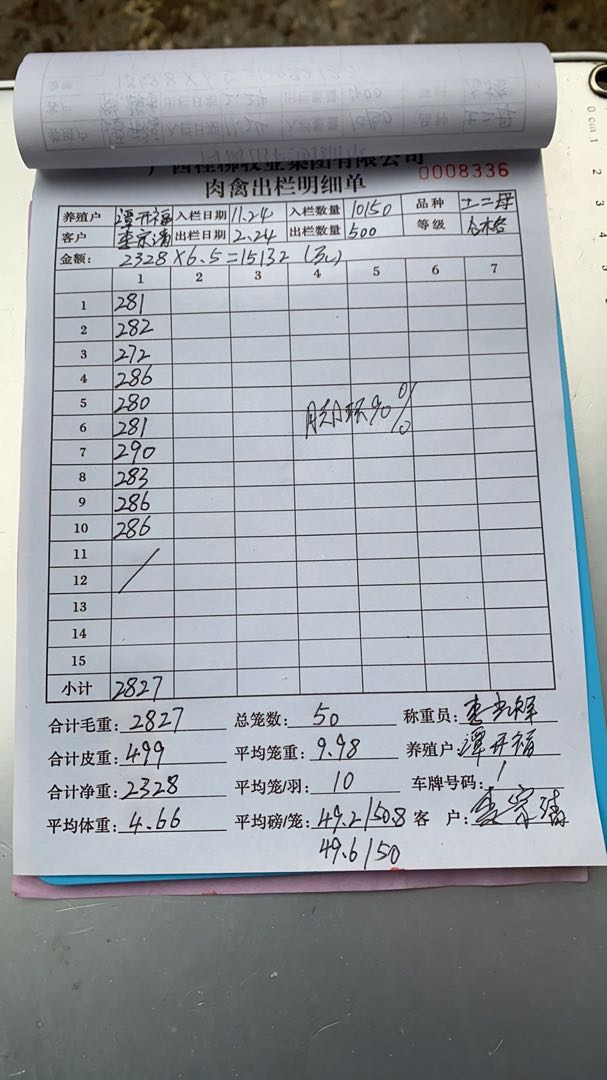 广西桂柳牧业集团有限公司
肉禽出栏明细单 0008336
养殖户 谭开福 入栏日期 11.24 入栏数量 10150 品种 土二母
客户 李宗清 出栏日期 2.24 出栏数量 500 等级 合格
金额: 2328×6.5=15132(元)
1 2 3 4 5 6 7
1 281
2 282
3 272
4 286
5 280
6 281
7 290
8 283
9 286
10 286
90%
11
12
13
14
15
小计 2827
合计毛重: 2827 总笼数: 50 称重员:
合计皮重: 499 平均笼重: 9.98 养殖户: 谭开福
合计净重: 2328 平均笼/羽: 10 车牌号码: /
平均体重: 4.66 平均磅/笼: 49.2/50.8 客 户: 李宗清
49.6/50
0 cm 1 2 3 4 5